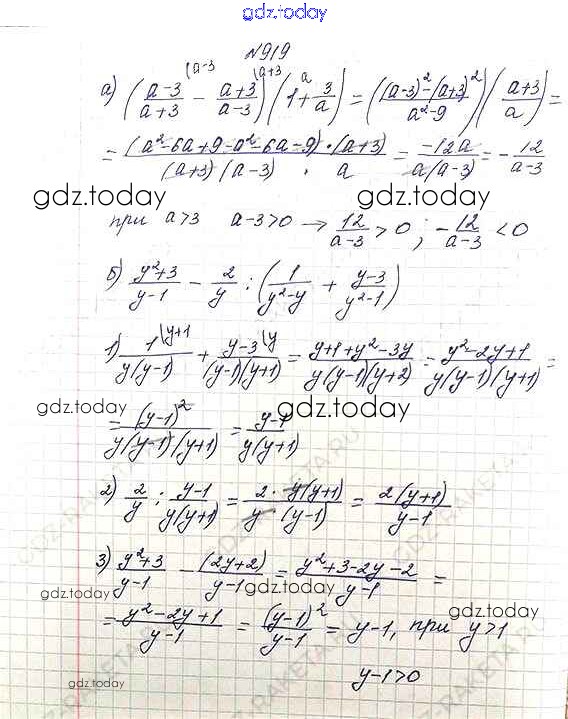 gdz.today
№919
а) ((a-3)/(a+3) \(a-3 - (a+3)/(a-3) \(a+3) (1 \a + 3/a) = (((a-3)² - (a+3)²)/(a²-9)) ((a+3)/a) =
= ((a²-6a+9-a²-6a-9) · (a+3))/((a+3)(a-3) · a) = (-12a)/(a(a-3)) = - 12/(a-3)
gdz.today gdz.today
при a>3 a-3>0 → 12/(a-3) > 0 ; - 12/(a-3) < 0
б) (y²+3)/(y-1) - 2/y : (1/(y²-y) + (y-3)/(y²-1))
1) 1\y+1/(y(y-1)) + (y-3\y)/((y-1)(y+1)) = (y+1+y²-3y)/(y(y-1)(y+2)) = (y²-2y+1)/(y(y-1)(y+1)) =
gdz.today gdz.today
= (y-1)²/(y(y-1)(y+1)) = (y-1)/(y(y+1))
2) 2/y : (y-1)/(y(y+1)) = (2 · y(y+1))/(y (y-1)) = (2(y+1))/(y-1)
GDZ-RAKETA.RU
3) (y²+3)/(y-1) - (2y+2)/(y-1) = (y²+3-2y-2)/(y-1) =
gdz.today gdz.today gdz.today
= (y²-2y+1)/(y-1) = (y-1)²/(y-1) = y-1, при y>1
y-1>0
gdz.today